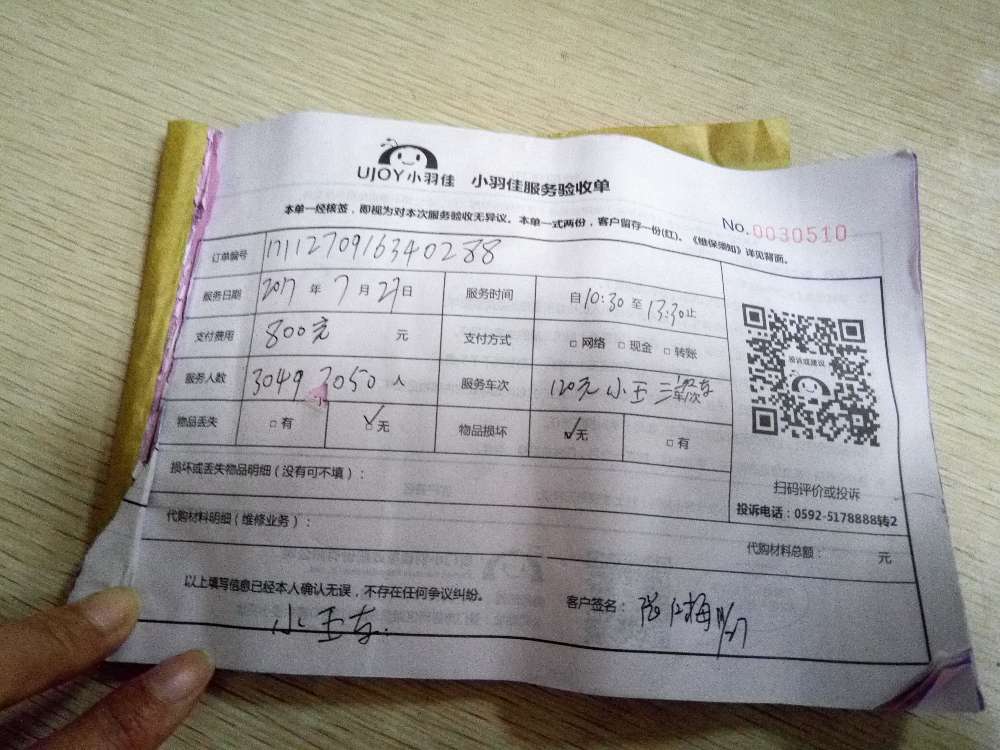 UJOY小羽佳 小羽佳服务验收单
No.0030510
本单一经核签，即视为对本次服务验收无异议。本单一式两份，客户留存一份(红)。《维保须知》详见背面。
订单编号 1711270916340288
服务日期 2017 年 月 27 日 服务时间 自 10:30 至 13:30 止
支付费用 800元 元 支付方式 □ 网络 □ 现金 □ 转账
服务人数 3049 3050 人 服务车次 120元 小王 三 车次
物品丢失 □ 有 □ 无 物品损坏 □ 无 □ 有
投诉或建议
扫码评价或投诉
投诉电话：0592-5178888转2
损坏或丢失物品明细（没有可不填）：
代购材料明细（维修业务）：
代购材料总额： 元
以上填写信息已经本人确认无误，不存在任何争议纠纷。
客户签名：
小王车